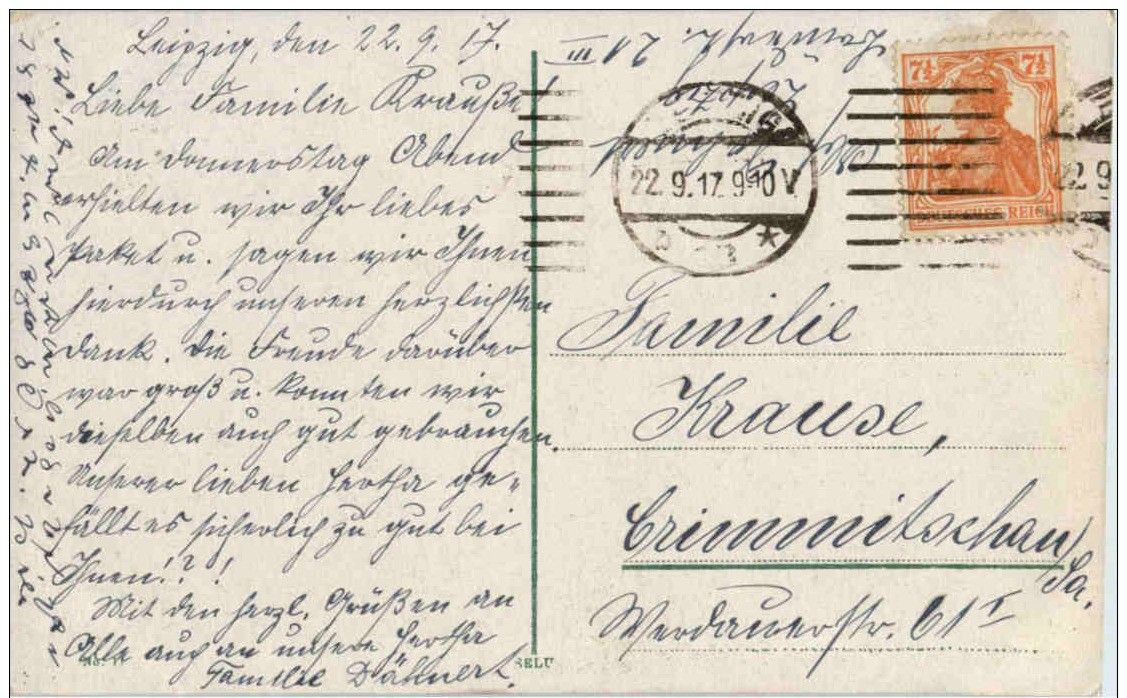 Leipzig, den 22.9.17.
Liebe Familie Krauße!
Am Donnerstag Abend
erhielten wir Ihr liebes
Paket u. sagen wir Ihnen
hierdurch unseren herzlichsten
Dank. Die Freude darüber
war groß u. konnten wir
dieselben auch gut gebrauchen.
Unserer lieben Hertha ge-
fällt es sicherlich zu gut bei
Ihnen!?!
Mit den herzl. Grüßen an
Alle auch an unsere Hertha
Familie Dähnert.
Leipzig
III
22.9.17.9-10V
*
7½ 7½
DEUTSCHES REICH
22.9
Familie
Krause,
Crimmitschau
Sa.
Werdauerstr. 61 I